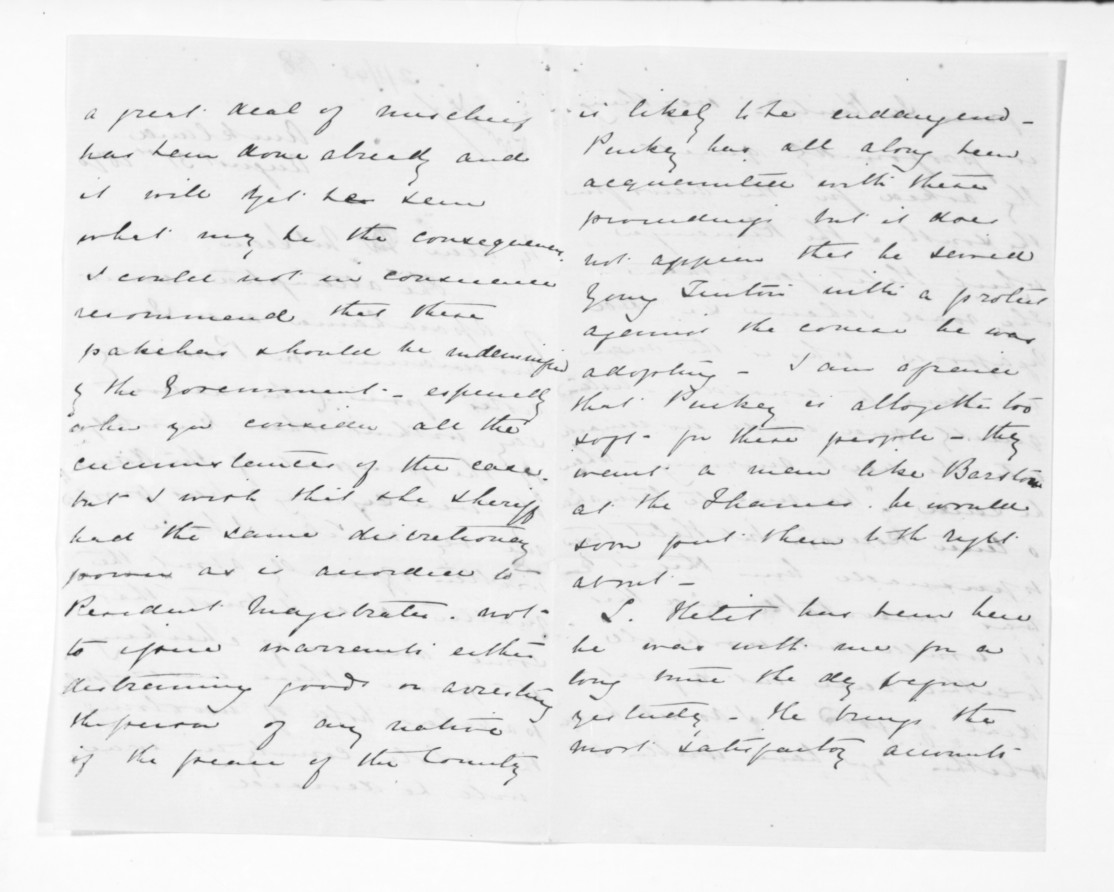 a great deal of mischief
has been done already and
it will yet be seen
what may be the consequences.
I could not in conscience
recommend that these
pakehas should be indemnified
by the Government - especially
when you consider all the
circumstances of the case.
but I wish that the Sheriff
had the same discretionary
power as is accorded to
Resident Magistrates. not
to issue warrants either
distraining goods or arresting
the person of any native
if the peace of the County
is likely to be endangered -
Puckey has all along been
acquainted with these
proceedings but it does
not appear that he served
Young with a protest
against the course he was
adopting - I am afraid
that Puckey is altogether too
soft for these people - they
want a man like Barstow
at the Thames. he would
soon put them to the right
about -
S. has been here
he was with me for a
long time the day before
yesterday - He brings the
most satisfactory accounts